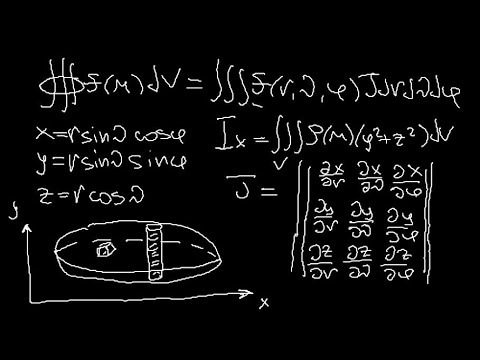 ∭f(M)dV = ∭f(r,ϑ,φ)Jdrdϑdφ
x=rsinϑcosφ
y=rsinϑsinφ
z=rcosϑ
Iₓ = ∭ρ(M)(y²+z²)dV
V
J = || ∂x/∂r ∂x/∂ϑ ∂x/∂φ ||
|| ∂y/∂r ∂y/∂ϑ ∂y/∂φ ||
|| ∂z/∂r ∂z/∂ϑ ∂z/∂φ ||
y
x